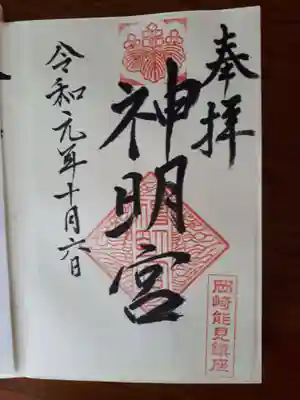 奉拝
神明宮
岡崎能見鎮座
令和元年十月六日